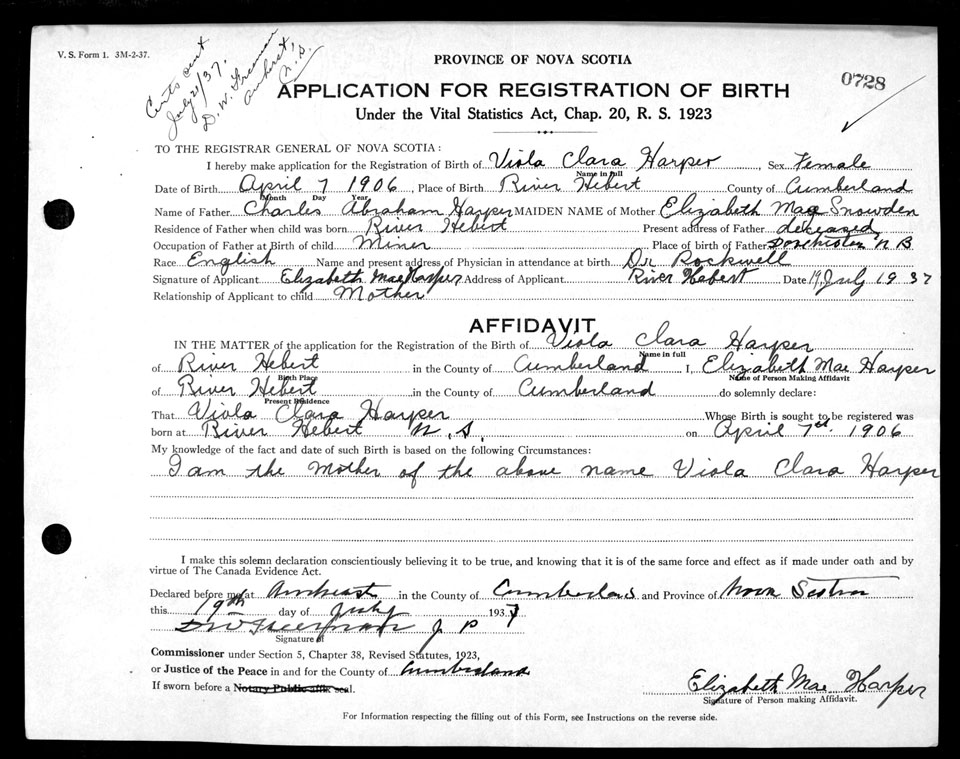 V. S. Form 1. 3M-2-37.
Certs sent
July 21/37.
D. W. Freeman
Amherst,
N. S.
PROVINCE OF NOVA SCOTIA
0728
APPLICATION FOR REGISTRATION OF BIRTH
Under the Vital Statistics Act, Chap. 20, R. S. 1923
TO THE REGISTRAR GENERAL OF NOVA SCOTIA:
I hereby make application for the Registration of Birth of Viola Clara Harper Sex Female
Name in full
Date of Birth April 7 1906, Place of Birth River Hebert County of Cumberland
Month Day Year
Name of Father Charles Abraham Harper MAIDEN NAME of Mother Elizabeth Mae Snowden
Residence of Father when child was born River Hebert Present address of Father deceased
Occupation of Father at Birth of child Miner Place of birth of Father Dorchester N B
Race English Name and present address of Physician in attendance at birth Dr Rockwell
Signature of Applicant Elizabeth Mae Harper Address of Applicant River Hebert Date 19 July 1937
Relationship of Applicant to child Mother
AFFIDAVIT
IN THE MATTER of the application for the Registration of the Birth of Viola Clara Harper
Name in full
of River Hebert in the County of Cumberland I, Elizabeth Mae Harper
Birth Place Name of Person Making Affidavit
of River Hebert in the County of Cumberland do solemnly declare:
Present Residence
That Viola Clara Harper Whose Birth is sought to be registered was
born at River Hebert N. S. on April 7th. 1906
My knowledge of the fact and date of such Birth is based on the following Circumstances:
I am the Mother of the above name Viola Clara Harper
I make this solemn declaration conscientiously believing it to be true, and knowing that it is of the same force and effect as if made under oath and by
virtue of The Canada Evidence Act.
Declared before me at Amherst in the County of Cumberland and Province of Nova Scotia
this 19th day of July 1937
D W Freeman J P
Signature of
Commissioner under Section 5, Chapter 38, Revised Statutes, 1923,
or Justice of the Peace in and for the County of Cumberland
If sworn before a Notary Public affix seal.
Elizabeth Mae Harper
Signature of Person making Affidavit.
For Information respecting the filling out of this Form, see Instructions on the reverse side.